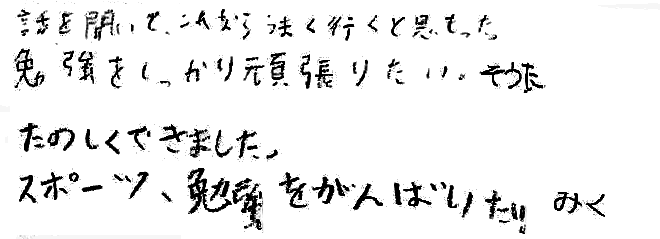 話を聞いて、これからうまく行くと思もった
勉強をしっかり頑張りたい。そうた
たのしくできました。
スポーツ、勉強をがんばりたい みく